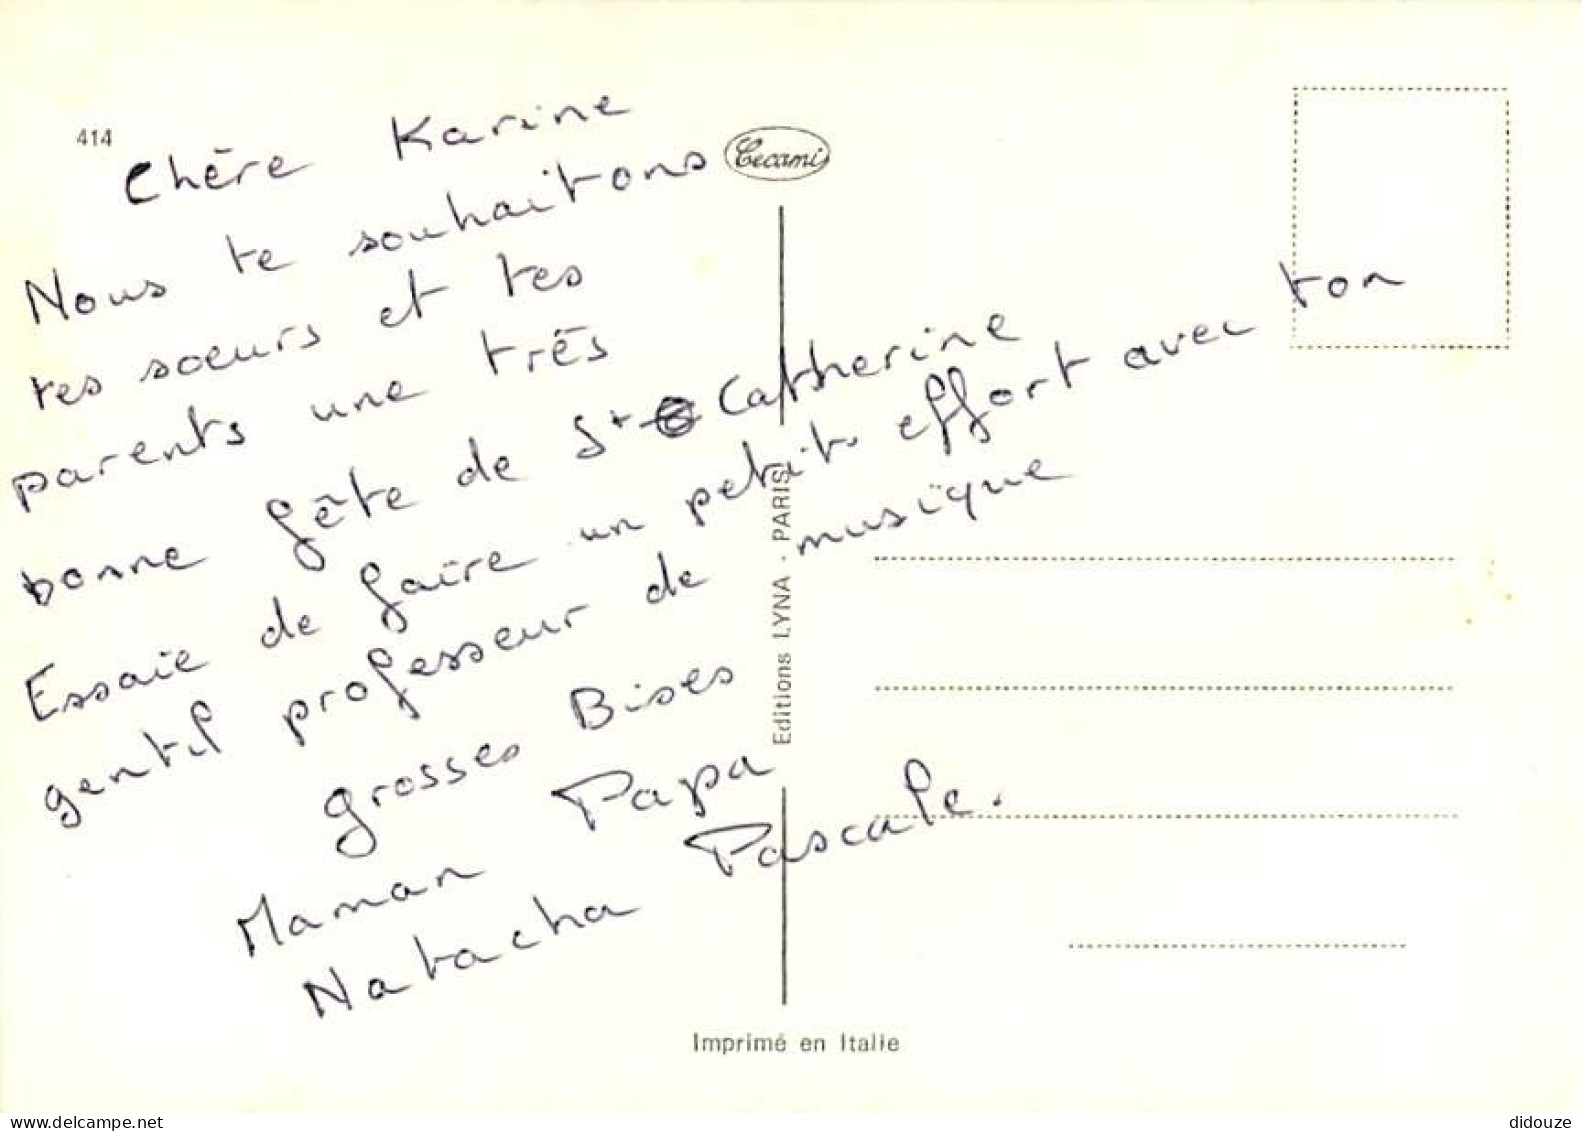 414
Cecami
Chère Karine
Nous te souhaitons
tes soeurs et tes
parents une très
bonne fête de St Catherine
Essaie de faire un petit effort avec ton
gentil professeur de musique
grosses Bises
Maman Papa
Natacha Pascale.
Editions LYNA - PARIS
Imprimé en Italie
www.delcampe.net
didouze